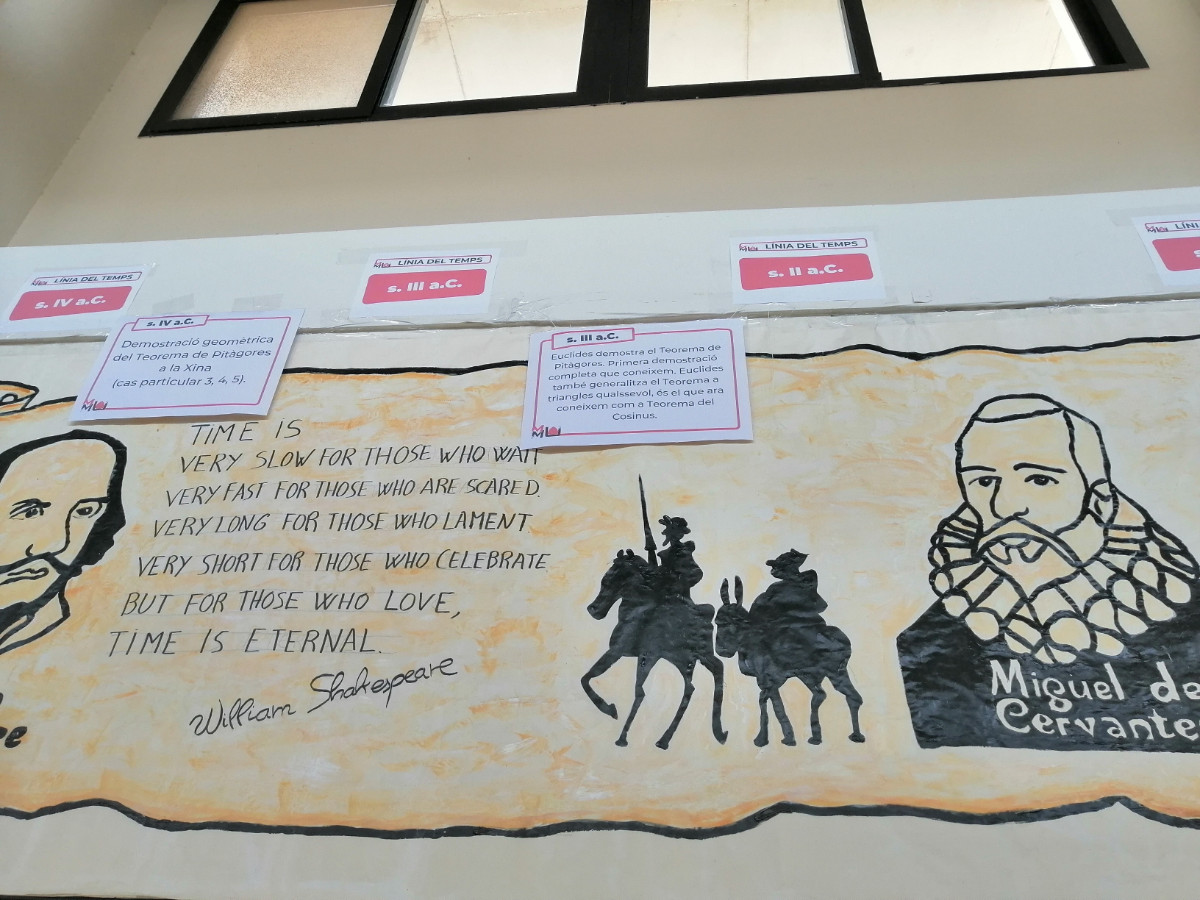 LÍNIA DEL TEMPS
s. IV a.C.
LÍNIA DEL TEMPS
s. III a.C.
LÍNIA DEL TEMPS
s. II a.C.
LÍNI
s. IV a.C.
Demostració geomètrica
del Teorema de Pitàgores
a la Xina
(cas particular 3, 4, 5).
s. III a.C.
Euclides demostra el Teorema de
Pitàgores. Primera demostració
completa que coneixem. Euclides
també generalitza el Teorema a
triangles qualssevol, és el que ara
coneixem com a Teorema del
Cosinus.
TIME IS
VERY SLOW FOR THOSE WHO WAIT
VERY FAST FOR THOSE WHO ARE SCARED.
VERY LONG FOR THOSE WHO LAMENT
VERY SHORT FOR THOSE WHO CELEBRATE
BUT FOR THOSE WHO LOVE,
TIME IS ETERNAL.
William Shakespeare
Miguel de
Cervante